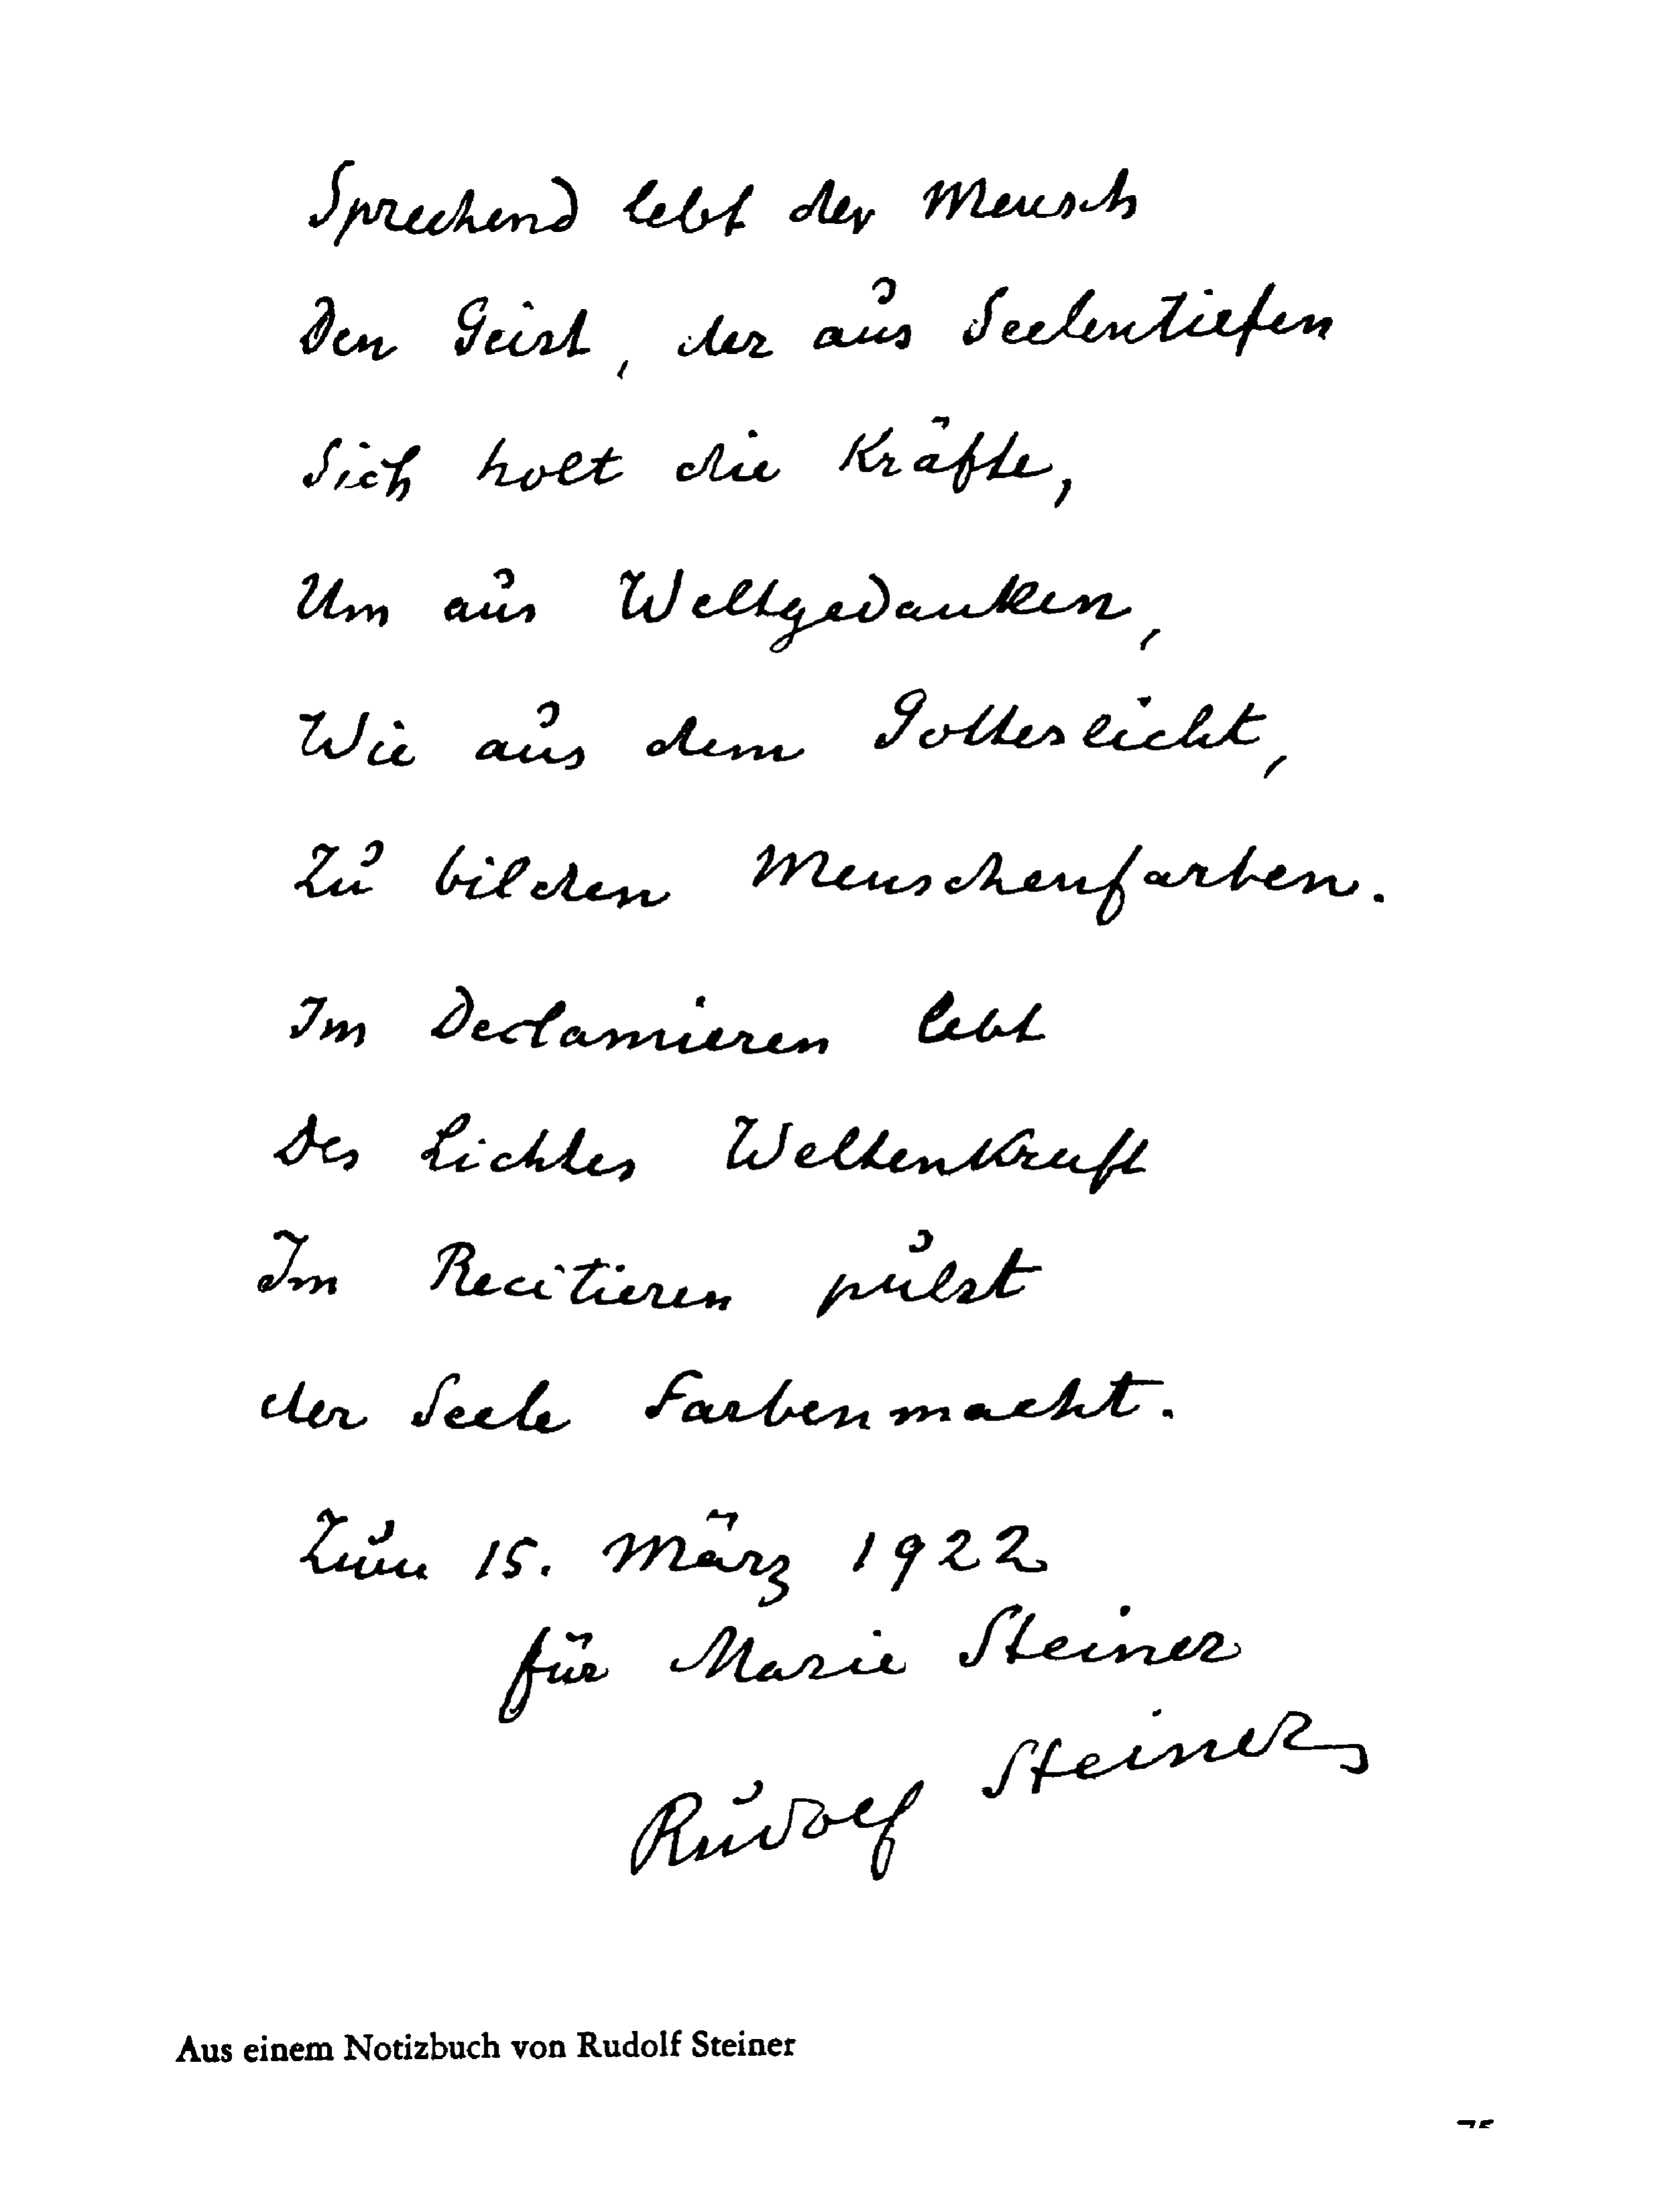 Sprechend lebt der Mensch
Den Geist, der aus Seelentiefen
Sich holt die Kräfte,
Um aus Weltgedanken,
Wie aus dem Gotteslicht,
Zu bilden Menschenfarben.
Im Declamieren lebt
Des Lichtes Weltenkraft
Im Recitieren pulst
der Seele Farbenmacht.
Zum 15. März 1922
für Marie Steiner
Rudolf Steiner
Aus einem Notizbuch von Rudolf Steiner